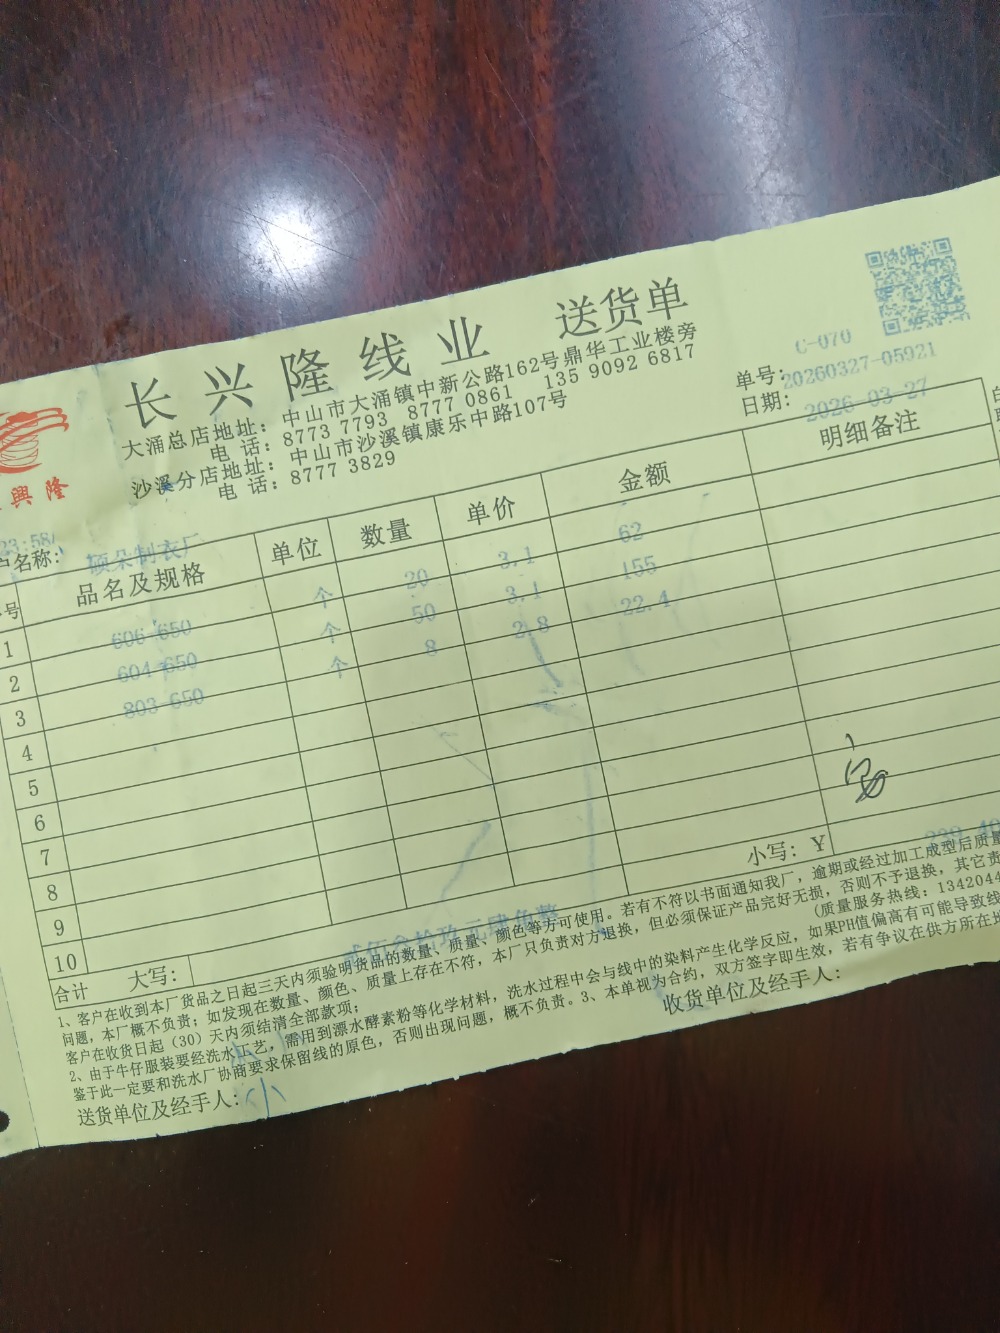 长兴隆线业 送货单
大涌总店地址：中山市大涌镇中新公路162号鼎华工业楼旁
电 话：8773 7793 8777 0861 135 9092 6817
沙溪分店地址：中山市沙溪镇康乐中路107号
电 话：8777 3829
興隆
C-070
单号：20260327-05921
日期：2026-03-27
23:58
户名称：硕朵制衣厂
号 品名及规格 单位 数量 单价 金额 明细备注
1 606-650 个 20 3.1 62
2 604-650 个 50 3.1 155
3 803-650 个 8 2.8 22.4
4
5
6
7
8
9
10
合计 大写：贰佰叁拾玖元肆角整 小写：￥239.40
1、客户在收到本厂货品之日起三天内须验明货品的数量、质量、颜色等方可使用。若有不符以书面通知我厂，逾期或经过加工成型后质量
问题，本厂概不负责；如发现在数量、颜色、质量上存在不符，本厂只负责对方退换，但必须保证产品完好无损，否则不予退换，其它责
客户在收货日起（30）天内须结清全部款项；（质量服务热线：1342044
2、由于牛仔服装要经洗水工艺，需用到漂水酵素粉等化学材料，洗水过程中会与线中的染料产生化学反应，如果PH值偏高有可能导致线
鉴于此一定要和洗水厂协商要求保留线的原色，否则出现问题，概不负责。3、本单视为合约，双方签字即生效，若有争议在供方所在地
送货单位及经手人： 收货单位及经手人：